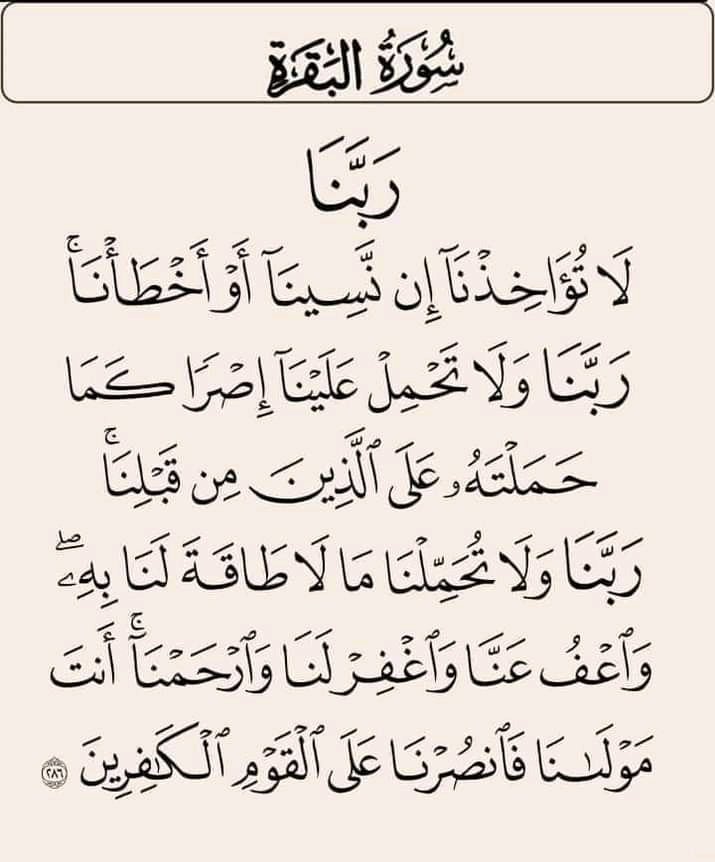 سُورَةُ البَقَرَةِ
رَبَّنَا
لَا تُؤَاخِذْنَآ إِن نَّسِينَآ أَوْ أَخْطَأْنَا ۚ
رَبَّنَا وَلَا تَحْمِلْ عَلَيْنَآ إِصْرًا كَمَا
حَمَلْتَهُۥ عَلَى ٱلَّذِينَ مِن قَبْلِنَا ۚ
رَبَّنَا وَلَا تُحَمِّلْنَا مَا لَا طَاقَةَ لَنَا بِهِۦ ۖ
وَٱعْفُ عَنَّا وَٱغْفِرْ لَنَا وَٱرْحَمْنَآ ۚ أَنتَ
مَوْلَىٰنَا فَٱنصُرْنَا عَلَى ٱلْقَوْمِ ٱلْكَٰفِرِينَ ٢٨٦